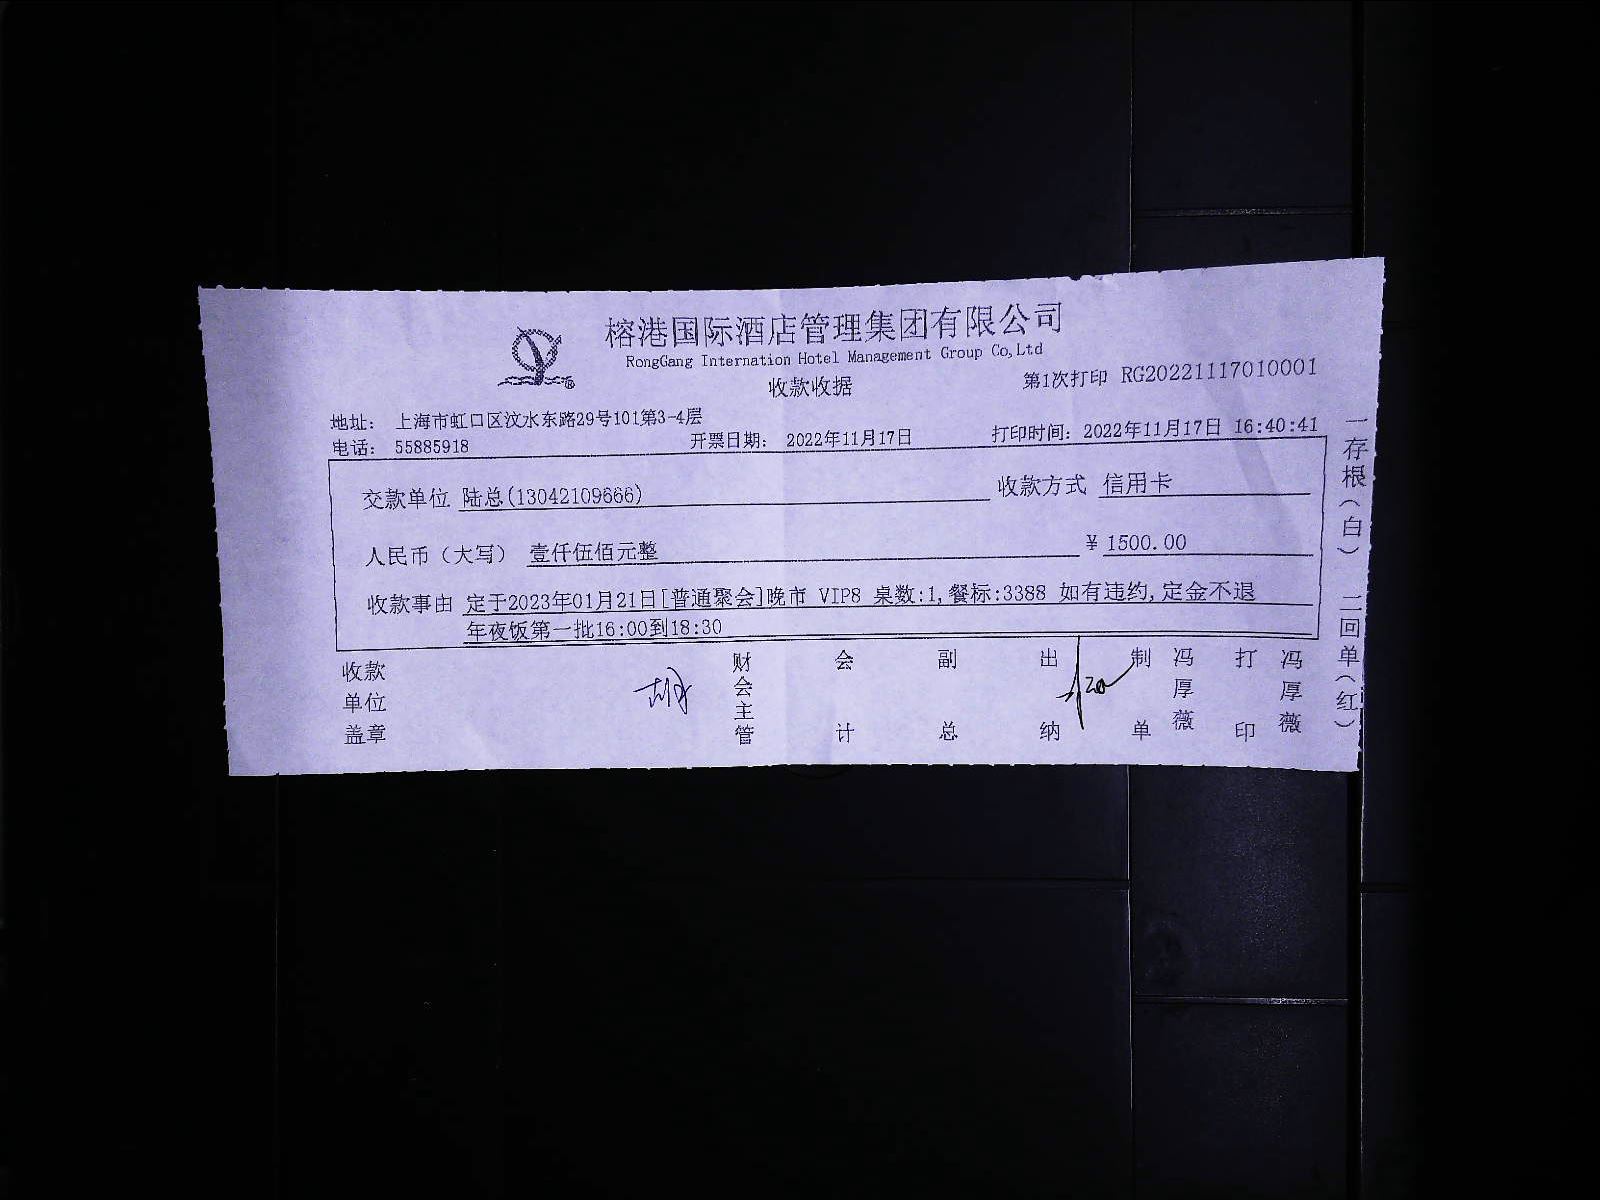 榕港国际酒店管理集团有限公司
RongGang Internation Hotel Management Group Co,Ltd
收款收据
第1次打印 RG20221117010001
地址： 上海市虹口区汶水东路29号101第3-4层
电话： 55885918 开票日期： 2022年11月17日 打印时间：2022年11月17日 16:40:41
交款单位 陆总(13042109666) 收款方式 信用卡
人民币（大写） 壹仟伍佰元整 ￥1500.00
收款事由 定于2023年01月21日[普通聚会]晚市 VIP8 桌数:1,餐标:3388 如有违约,定金不退
年夜饭第一批16:00到18:30
收款单位盖章 财会主管 会计 副总 出纳 制单 冯厚薇 打印 冯厚薇
一存根（白） 二回单（红）